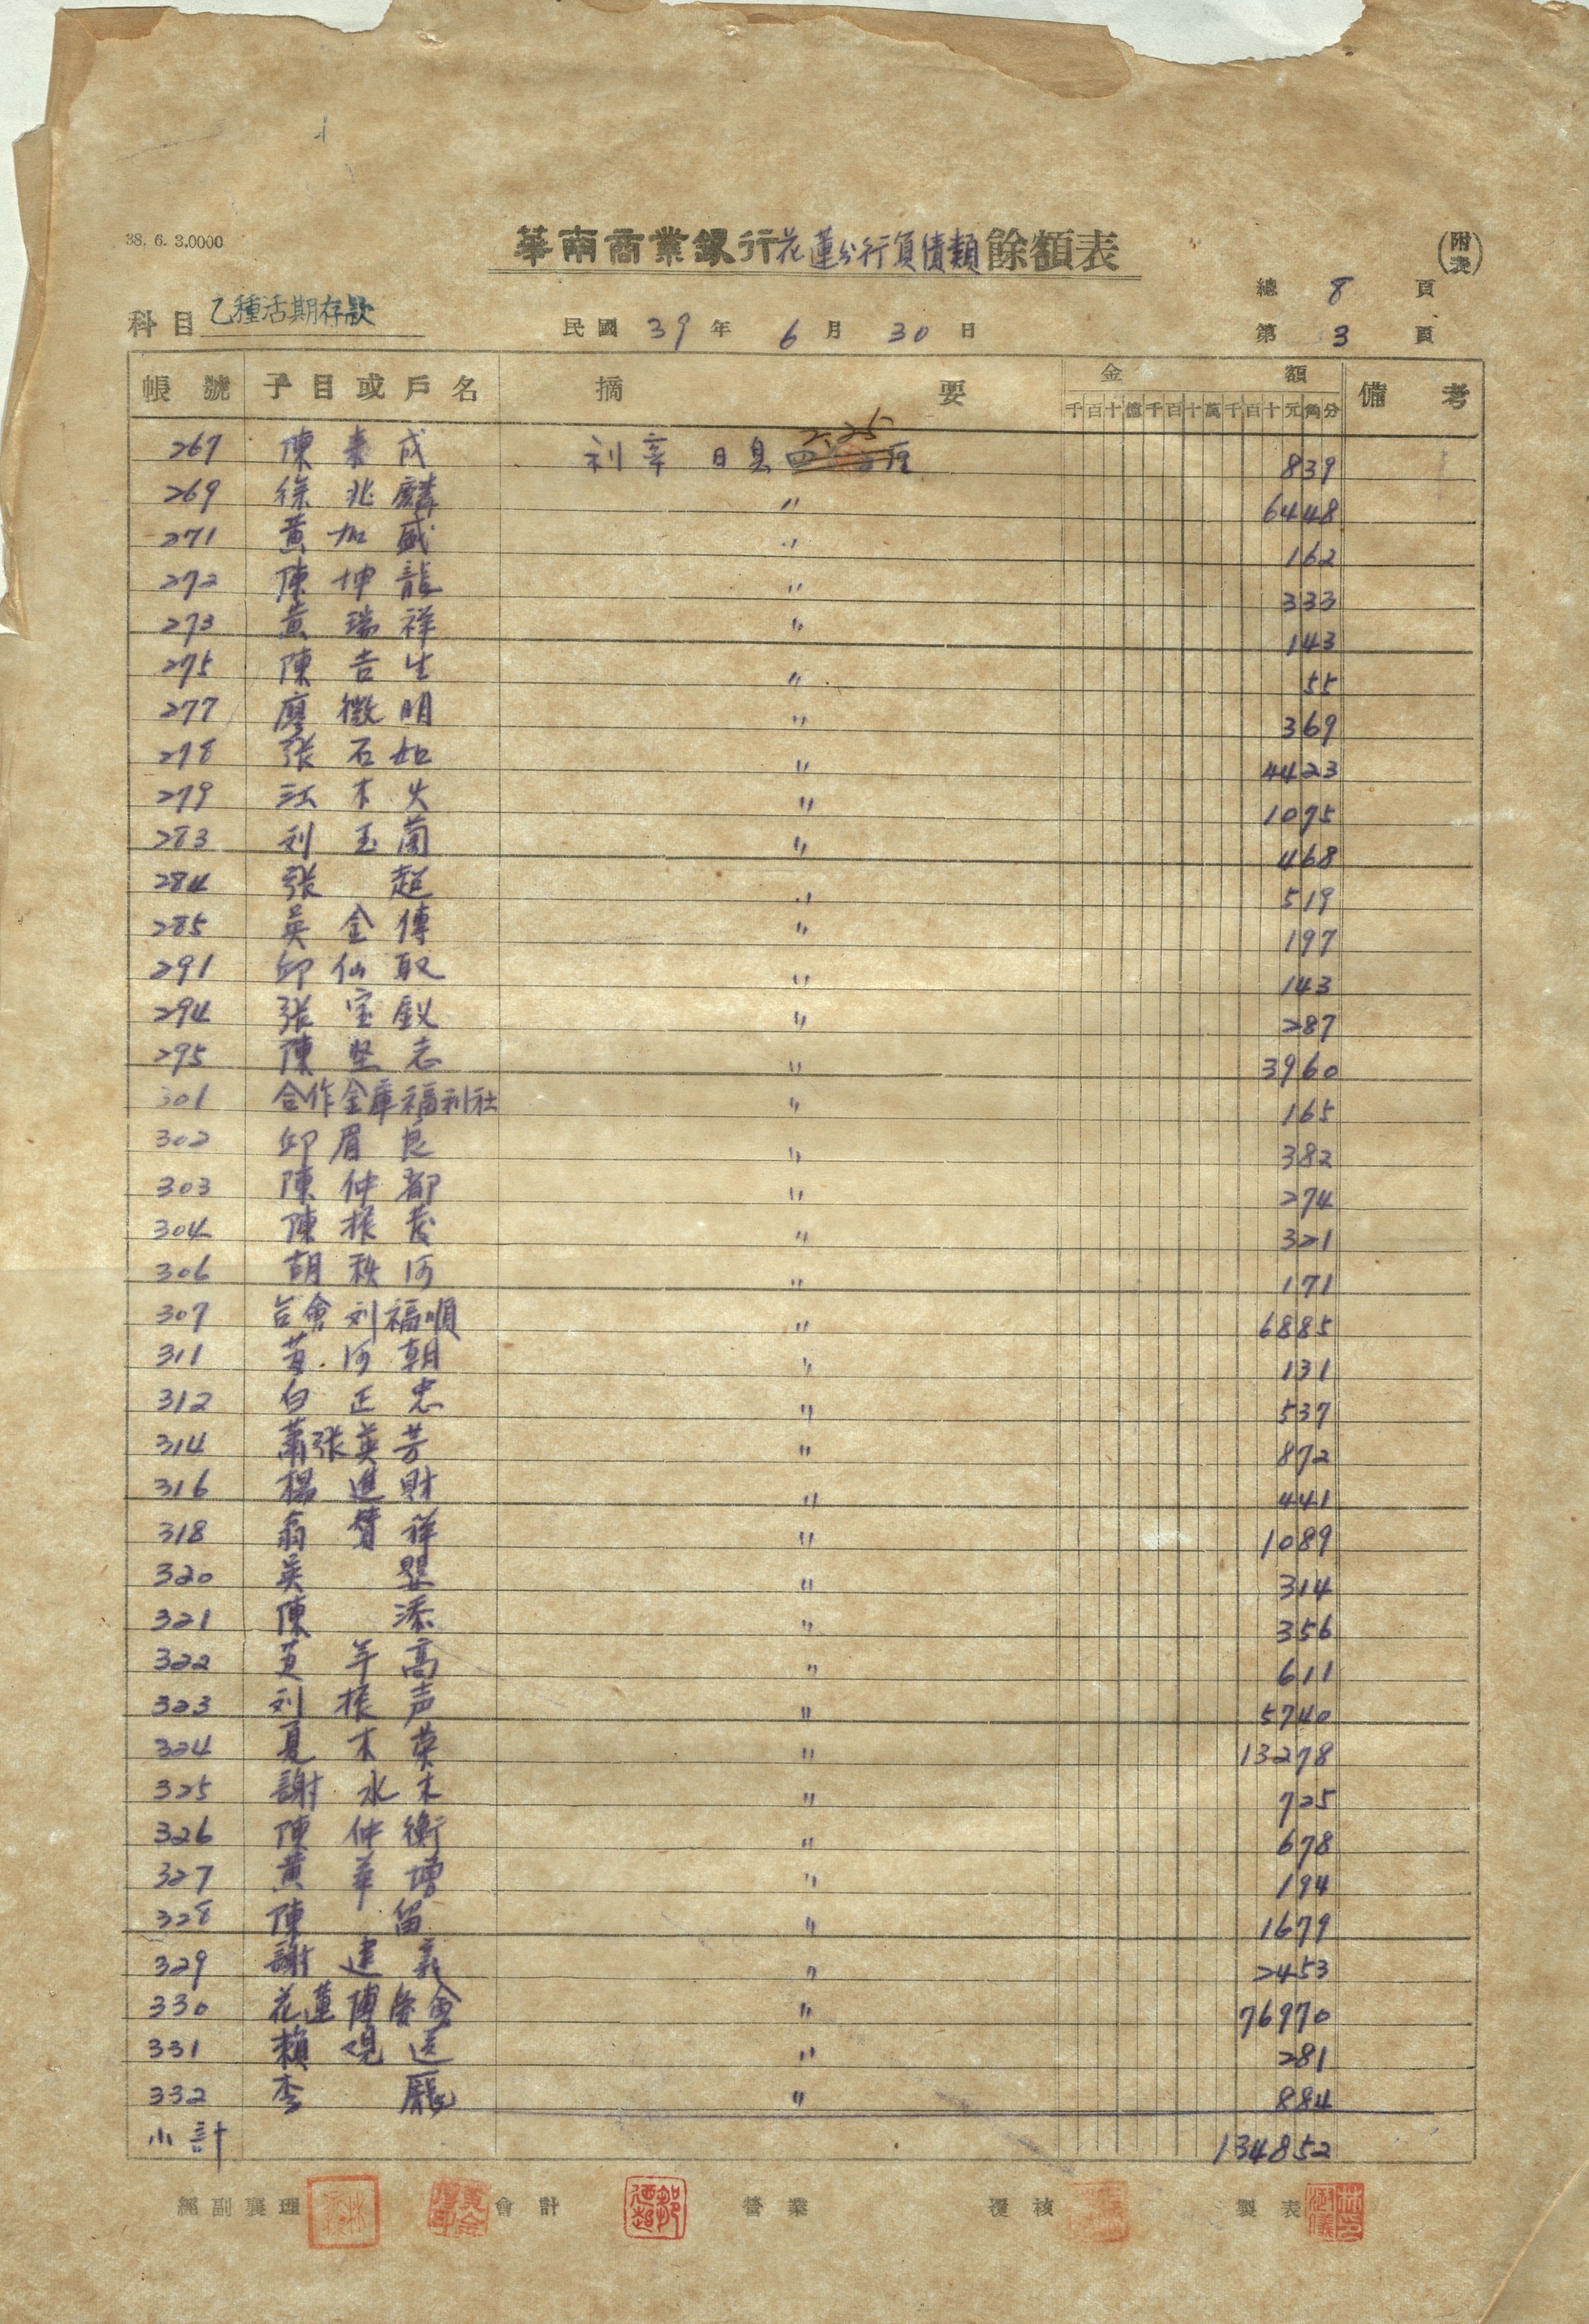 38. 6. 3.0000
華南商業銀行花蓮分行負債類餘額表
(附表)
總 8 頁
科目 乙種活期存款
民國 39 年 6 月 30 日
第 3 頁
帳號 子目或戶名 摘要 金額 備考
千百十億千百十萬千百十元角分
2.25
267 陳泰成 利率 日息 厘 839
269 徐兆麟 〃 6448
271 黃加盛 〃 162
272 陳坤龍 〃 333
273 黃瑞祥 〃 143
275 陳吉生 〃 55
277 廖徵明 〃 369
278 張石如 〃 4423
279 江木火 〃 1095
283 刘玉蘭 〃 468
284 張超 〃 519
285 吳金傳 〃 197
291 邱仙取 〃 143
294 張宝釵 〃 287
295 陳堅志 〃 3960
301 合作金庫福利社 〃 165
302 邱眉良 〃 382
303 陳仲都 〃 274
304 陳振茂 〃 321
306 胡秋河 〃 171
307 台會刘福順 〃 6885
311 黃河朝 〃 131
312 白正忠 〃 537
314 蕭張英芳 〃 872
316 楊進財 〃 441
318 翁贊祥 〃 1089
320 吳 〃 314
321 陳添 〃 356
322 黃年高 〃 611
323 刘振声 〃 5740
324 夏木英 〃 13278
325 謝水木 〃 725
326 陳仲衡 〃 678
327 黃華增 〃 194
328 陳留 〃 1679
329 謝建義 〃 2453
330 花蓮 會 〃 76970
331 賴 送 〃 281
332 李 〃 884
小計 134852
經副襄理 會計 營業 覆核 製表